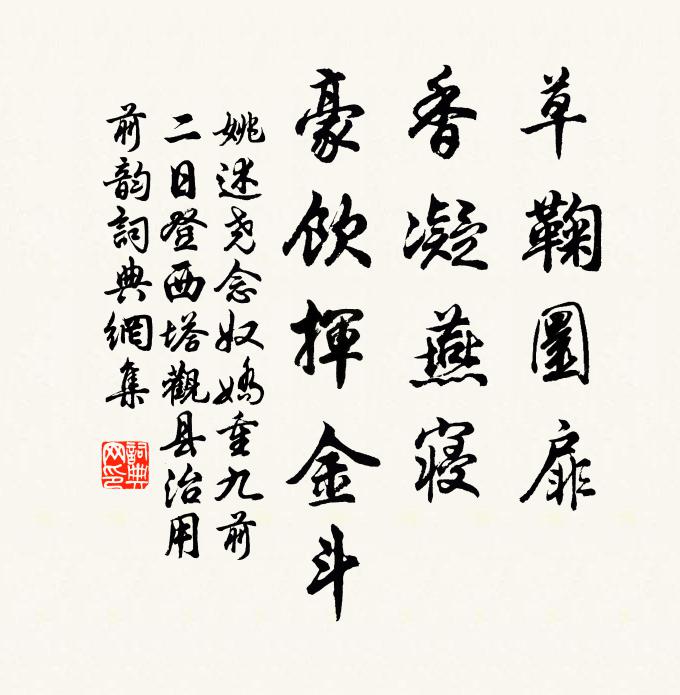 草鞠圜扉
香凝燕寝
豪飲揮金斗
姚述尧念奴嬌重九前
二日登西塔觀县治用
前韵詞典網集
詞典网印